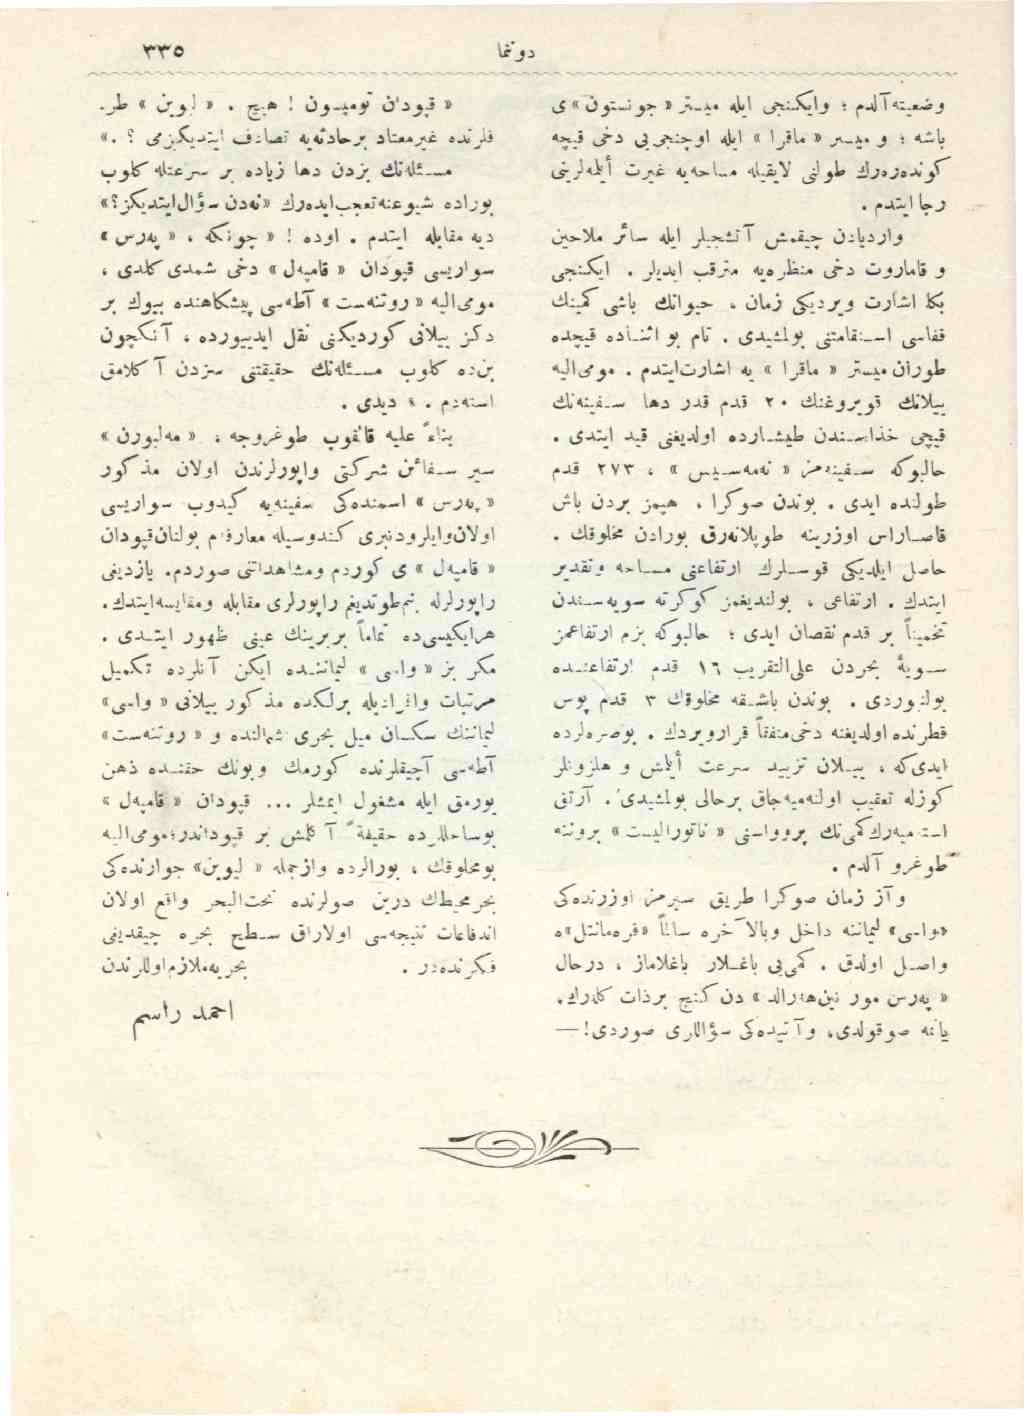 دوننما
٣٣٥
وضعيته آلدم ؛ وايكنجى ايله ميستر « جونستون » ى
باشه ؛ و ميستر « ماقرا » ايله اوچنجى يى دخى قيچه
كوندەرەرك طولنى لايقيله مساحه يه غيرت أيلمه لرينى
رجا ايتدم .
وارديادن چيقمش آتشجيلر ايله سائر ملاحين
و قاماروت دخى منظره يه مترقب ايديلر . ايكنجى
بكا اشارت ويرديكى زمان ، حيوانك باشى كمينك
قفاسى استقامتنى بولمشيدى . تام بو اثناده قيچده
طوران ميستر « ماقرا » يه اشارت ايتدم . مومى اليه
ييلانك قويروغنك ٢٠ قدم قدر دها سفينه نك
قيچى حذاسندن طيشارده اولديغنى قيد ايتدى .
حالبوكه سفينه مز « نه مه سيس » ، ٢٧٣ قدم
طولنده ايدى . بوندن صوكرا ، هپمز بردن باش
قاصاراس اوزرينه طوپلانەرق بورادن مخلوقك .
حاصل ايلديكى قوسلرك ارتفاعنى مساحه وتقدير
ايتدك . ارتفاعى ، بولنديغمز كوكرته سويه سندن
تخميناً بر قدم نقصان ايدى ؛ حالبوكه بزم ارتفاعمز
سويهٔ بحردن على التقريب ١٦ قدم ارتفاعنده
بولنيوردى . بوندن باشقه مخلوقك ٣ قدم پوس
قطرنده اولديغنه دخى متفقاً قرار ويردك . بوصره لرده
ايدى كه ، ييلان تزييد سرعت أيلمش و هلزونلر
كوزله تعقيب اولنه ميه جاق برحالى بولمشيدى . آرتق
استه ميه رك كمى نك پرووا سنى « ناتوراليست » بروننه
طوغرو آلدم .
و آز زمان صوكرا طريق سيرمز اوزرنده كى
« واسى » ليماننه داخل وبالآخره سالماً « فره مانتل » ه
واصل اولدق . كمى يى باغلار باغلاماز ، درحال
« پەرس مور نين هەرالد » دن كنج بر ذات كلەرك ،
يانمه صوقولدى ، و آتيده كى سؤاللرى صوردى ! —
« قپودان تومپسون ! هيچ . « ليوين » طر .
فلرنده غيرمعتاد برحادثه يه تصادف ايتديكزمى ؟ . »
مسئله نك بزدن دها زياده بر سرعتله كلوب
بوراده شيوعنه تعجب ايدەرك « نه دن سؤال ايتديكز ؟ »
ديه مقابله ايتدم . اوده ! « چونكه ، « پەرس »
سواريسى قپودان « قامپه ل » دخى شمدى كلدى ،
مومى اليه « روتنه ست » آطه سى پيشكاهنده بيوك بر
دكز ييلانى كورديكنى نقل ايدييورده ، آنكچون
بن ده كلوب مسئله نك حقيقتنى سزدن آ كلامق
استه دم . » ديدى .
بناءً عليه قالقوب طوغروجه ، « مه لبورن »
سير سفائن شركتى واپورلرندن اولان مذكور
« پەرس » اسمنده كى سفينه يه كيدوب سواريسى
اولان وايلرودنبرى كندوسيله معارفه م بولنان قپودان
« قامپه ل » ى كوردم ومشاهداتنى صوردم . يازديغى
راپورلرله بنم طوتديغم راپورلرى مقابله ومقايسه ايتدك .
هرايكيسى ده تماماً بربرينك عينى ظهور ايتدى .
مكر بز « واسى » ليماننده ايكن آنلرده تكميل
مرتبات وافراديله برلكده مذكور ييلانى « واسى »
ليماننك سكسان ميل بحرى شمالنده و « روتنه ست »
آطه سى آچيقلرنده كورمك وبونك حقنده ذهن
يورمق ايله مشغول ايمشلر ... قپودان « قامپه ل »
بوساحللرده حقيقةً آ كلمش بر قپوداندر؛ مومى اليه
بومخلوقك ، بورالرده وازجمله « ليوين » جوارنده كى
بحرمحيطك درين صولرنده تحت البحر واقع اولان
اندفاعات نتيجه سى اولاراق سطح بحره چيقديغى
فكرنده در .
بحريه ملازم اوللرندن
احمد راسم